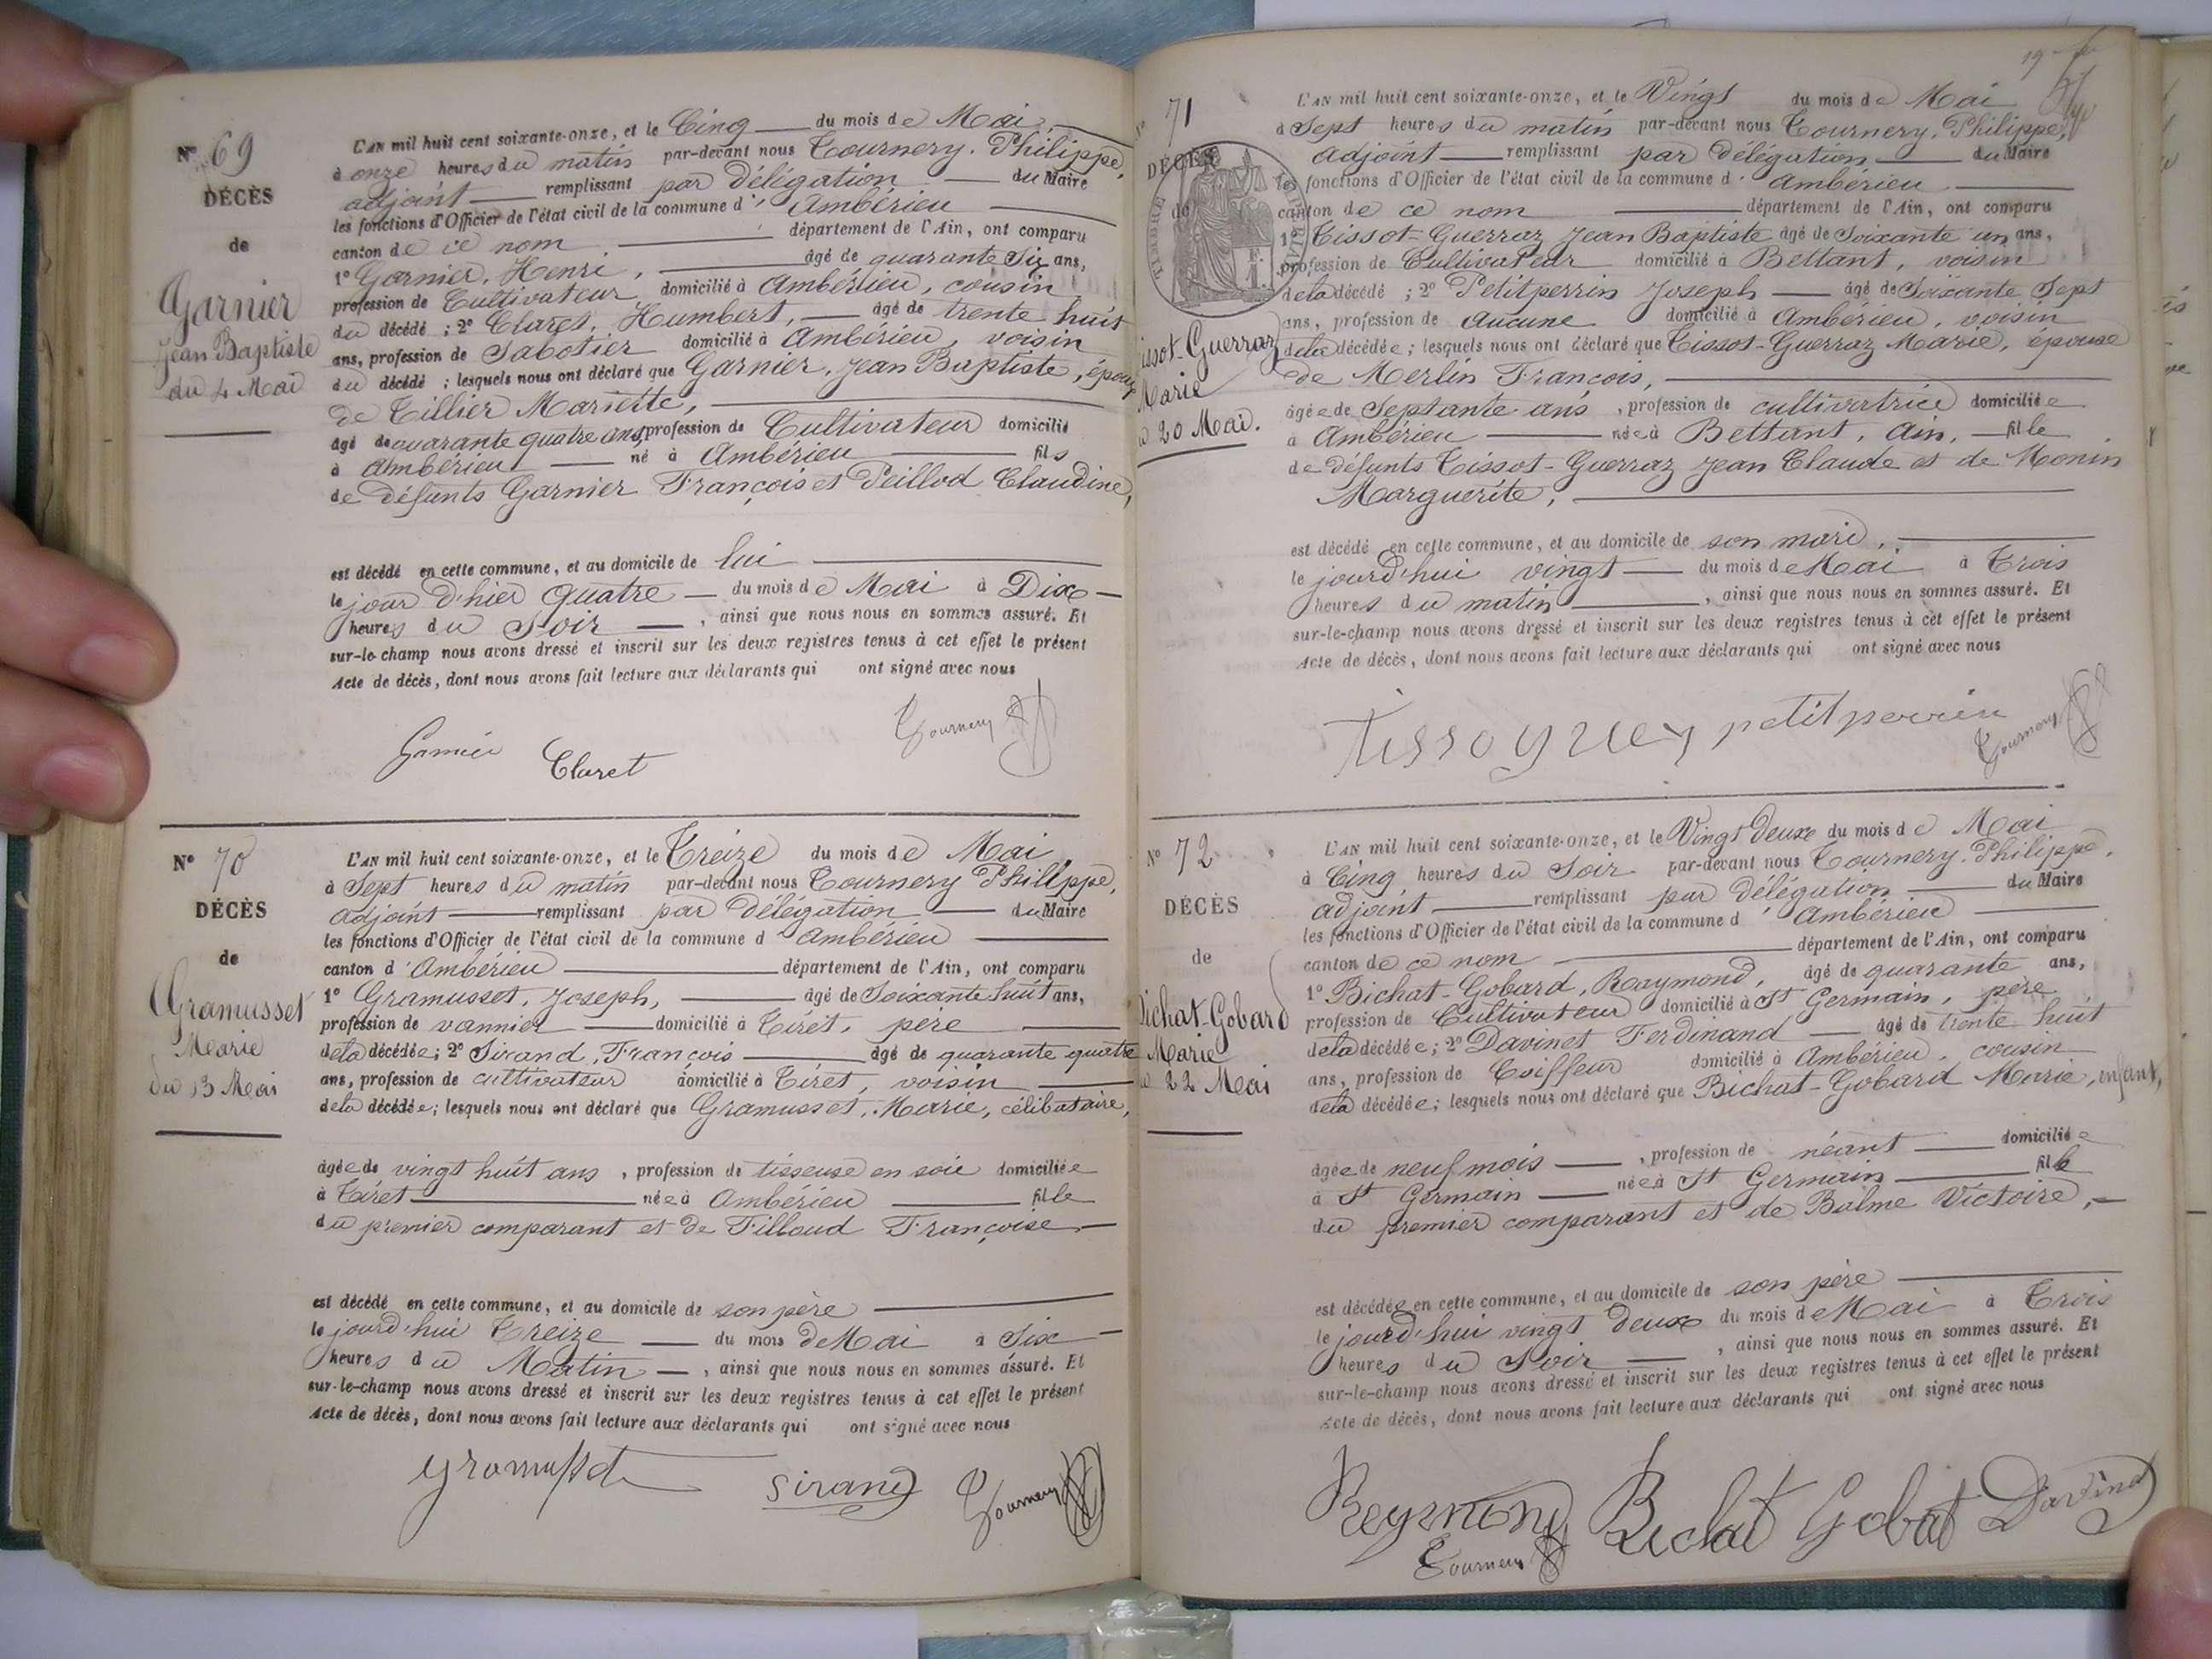 Nº 69
DÉCÈS
de
Garnier
Jean Baptiste
du 4 Mai
L'AN mil huit cent soixante-onze, et le Cinq du mois de Mai,
à onze heures du matin par-devant nous Tournery. Philippe,
adjoint remplissant par délégation du Maire
les fonctions d'Officier de l'état civil de la commune d' Ambérieu
canton de ce nom département de l'Ain, ont comparu
1º Garnier, Henri, âgé de quarante Six ans,
profession de Cultivateur domicilié à Ambérieu, cousin
du décédé ; 2º Claret, Humbert, âgé de trente huit
ans, profession de Sabotier domicilié à Ambérieu, voisin
du décédé ; lesquels nous ont déclaré que Garnier, Jean Baptiste, époux
de Tillier Mariette,
âgé de quarante quatre ans, profession de Cultivateur domicilié
à Ambérieu né à Ambérieu fils
de défunts Garnier François et Peillod Claudine,
est décédé en cette commune, et au domicile de lui
le jour d'hier quatre du mois de Mai à Dix
heures du Soir , ainsi que nous nous en sommes assuré. Et
sur-le-champ nous avons dressé et inscrit sur les deux registres tenus à cet effet le présent
Acte de décès, dont nous avons fait lecture aux déclarants qui ont signé avec nous
Garnier Claret Tournery
Nº 70
DÉCÈS
de
Gramusset
Marie
du 13 Mai
L'AN mil huit cent soixante-onze, et le Treize du mois de Mai,
à Sept heures du matin par-devant nous Tournery Philippe,
adjoint remplissant par délégation du Maire
les fonctions d'Officier de l'état civil de la commune d' Ambérieu
canton d' Ambérieu département de l'Ain, ont comparu
1º Gramusset, Joseph, âgé de Soixante huit ans,
profession de vannier domicilié à Tiret, père
de la décédée; 2º Sirand, François âgé de quarante quatre
ans, profession de cultivateur domicilié à Tiret, voisin
de la décédée; lesquels nous ont déclaré que Gramusset, Marie, célibataire,
âgée de vingt huit ans , profession de tisseuse en soie domiciliée
à Tiret née à Ambérieu fille
du premier comparant et de Filloud Françoise
est décédé en cette commune, et au domicile de son père
le jourd'hui Treize du mois de Mai à Six
heures du Matin , ainsi que nous nous en sommes assuré. Et
sur-le-champ nous avons dressé et inscrit sur les deux registres tenus à cet effet le présent
Acte de décès, dont nous avons fait lecture aux déclarants qui ont signé avec nous
gramusset sirand Tournery
19
Nº 71
DÉCÈS
de
issot-Guerraz
Marie
u 20 Mai.
L'AN mil huit cent soixante-onze, et le Vingt du mois de Mai
à Sept heures du matin par-devant nous Tournery, Philippe,
adjoint remplissant par délégation du Maire
les fonctions d'Officier de l'état civil de la commune d' Ambérieu
canton de ce nom département de l'Ain, ont comparu
1º Tissot-Guerraz Jean Baptiste âgé de Soixante un ans,
profession de Cultivateur domicilié à Bettant, voisin
de la décédé ; 2º Petitperrin Joseph âgé de Soixante Sept
ans, profession de aucune domicilié à Ambérieu, voisin
de la décédée ; lesquels nous ont déclaré que Tissot-Guerraz Marie, épouse
de Merlin François,
âgée de Septante ans , profession de cultivatrice domiciliée
à Ambérieu née à Bettant, Ain, fille
de défunts Tissot-Guerraz Jean Claude et de Monin
Marguerite,
est décédé en cette commune, et au domicile de son mari,
le jourd'hui vingt du mois de Mai à Trois
heures du matin , ainsi que nous nous en sommes assuré. Et
sur-le-champ nous avons dressé et inscrit sur les deux registres tenus à cet effet le présent
Acte de décès, dont nous avons fait lecture aux déclarants qui ont signé avec nous
petitperrin Tournery
Nº 72
DÉCÈS
de
Bichat-Gobard
Marie
u 22 Mai
L'AN mil huit cent soixante-onze, et le Vingt Deux du mois de Mai
à Cinq heures du Soir par-devant nous Tournery. Philippe,
adjoint remplissant par délégation du Maire
les fonctions d'Officier de l'état civil de la commune d' Ambérieu
canton de ce nom département de l'Ain, ont comparu
1º Bichat-Gobard, Raymond, âgé de quarante ans,
profession de Cultivateur domicilié à St Germain, père
de la décédée; 2º Davinet Ferdinand âgé de trente huit
ans, profession de Coiffeur domicilié à Ambérieu, cousin
de la décédée; lesquels nous ont déclaré que Bichat-Gobard Marie, enfant,
âgée de neuf mois , profession de néant domiciliée
à St Germain née à St Germain fille
du premier comparant et de Balme Victoire,
est décédée en cette commune, et au domicile de son père
le jourd'hui vingt deux du mois de Mai à Trois
heures du Soir , ainsi que nous nous en sommes assuré. Et
sur-le-champ nous avons dressé et inscrit sur les deux registres tenus à cet effet le présent
Acte de décès, dont nous avons fait lecture aux déclarants qui ont signé avec nous
Reymond Bichat Gobat Davinet
Tournery